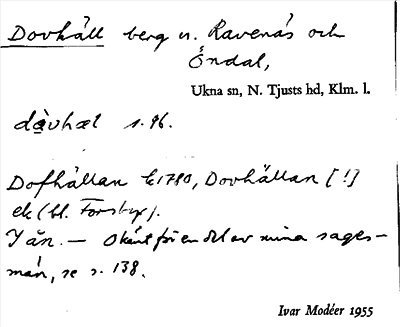 Dovhäll berg n. Ravenäs och
Öndal,
Ukna sn, N. Tjusts hd, Klm. l.
dåvhæl s. 96.
Dofhällan k 1780, Dovhällan [!]
ek (bl. Forsby).
I ån. — Okänt för en del av mina sages-
män, se s. 138.
Ivar Modéer 1955